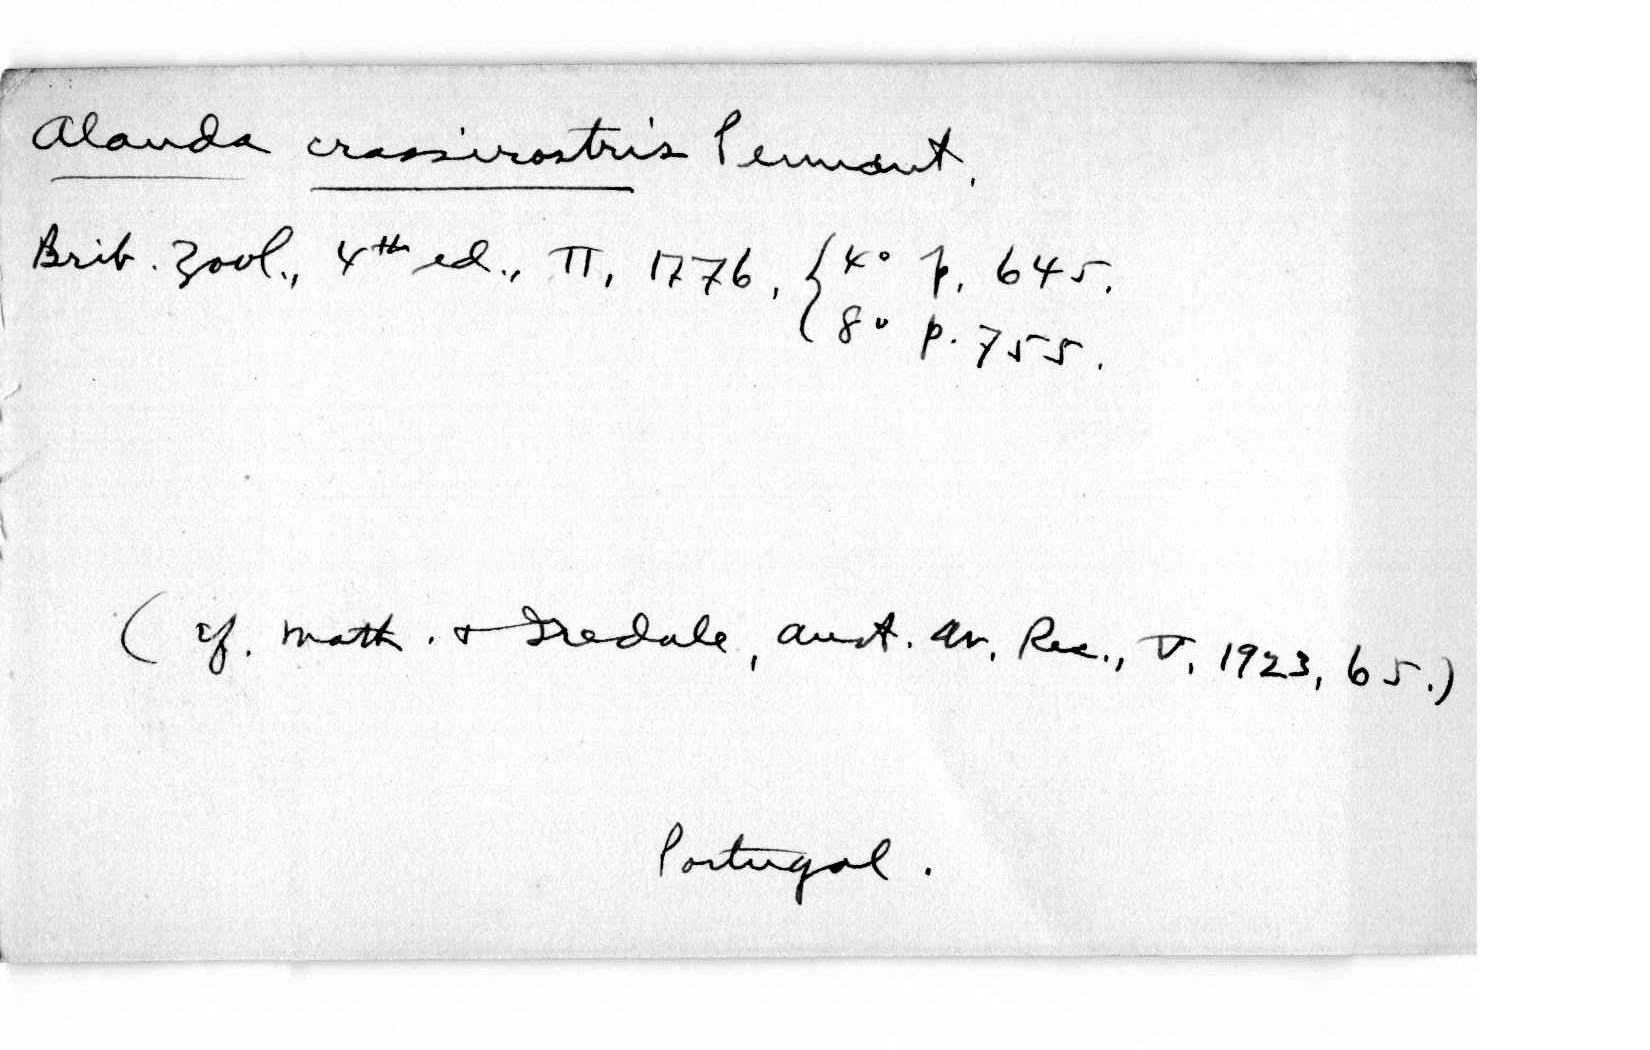 Alauda crassirostris Pennant.
Brit. Zool., 4th ed., II, 1776, { 4° p. 645.
8° p. 755.
(cf. Math. & Iredale, Aust. Av. Rec., V, 1923, 65.)
Portugal.